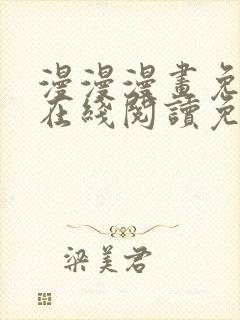 漫漫漫畫免
在綫閱讀免
梁美君